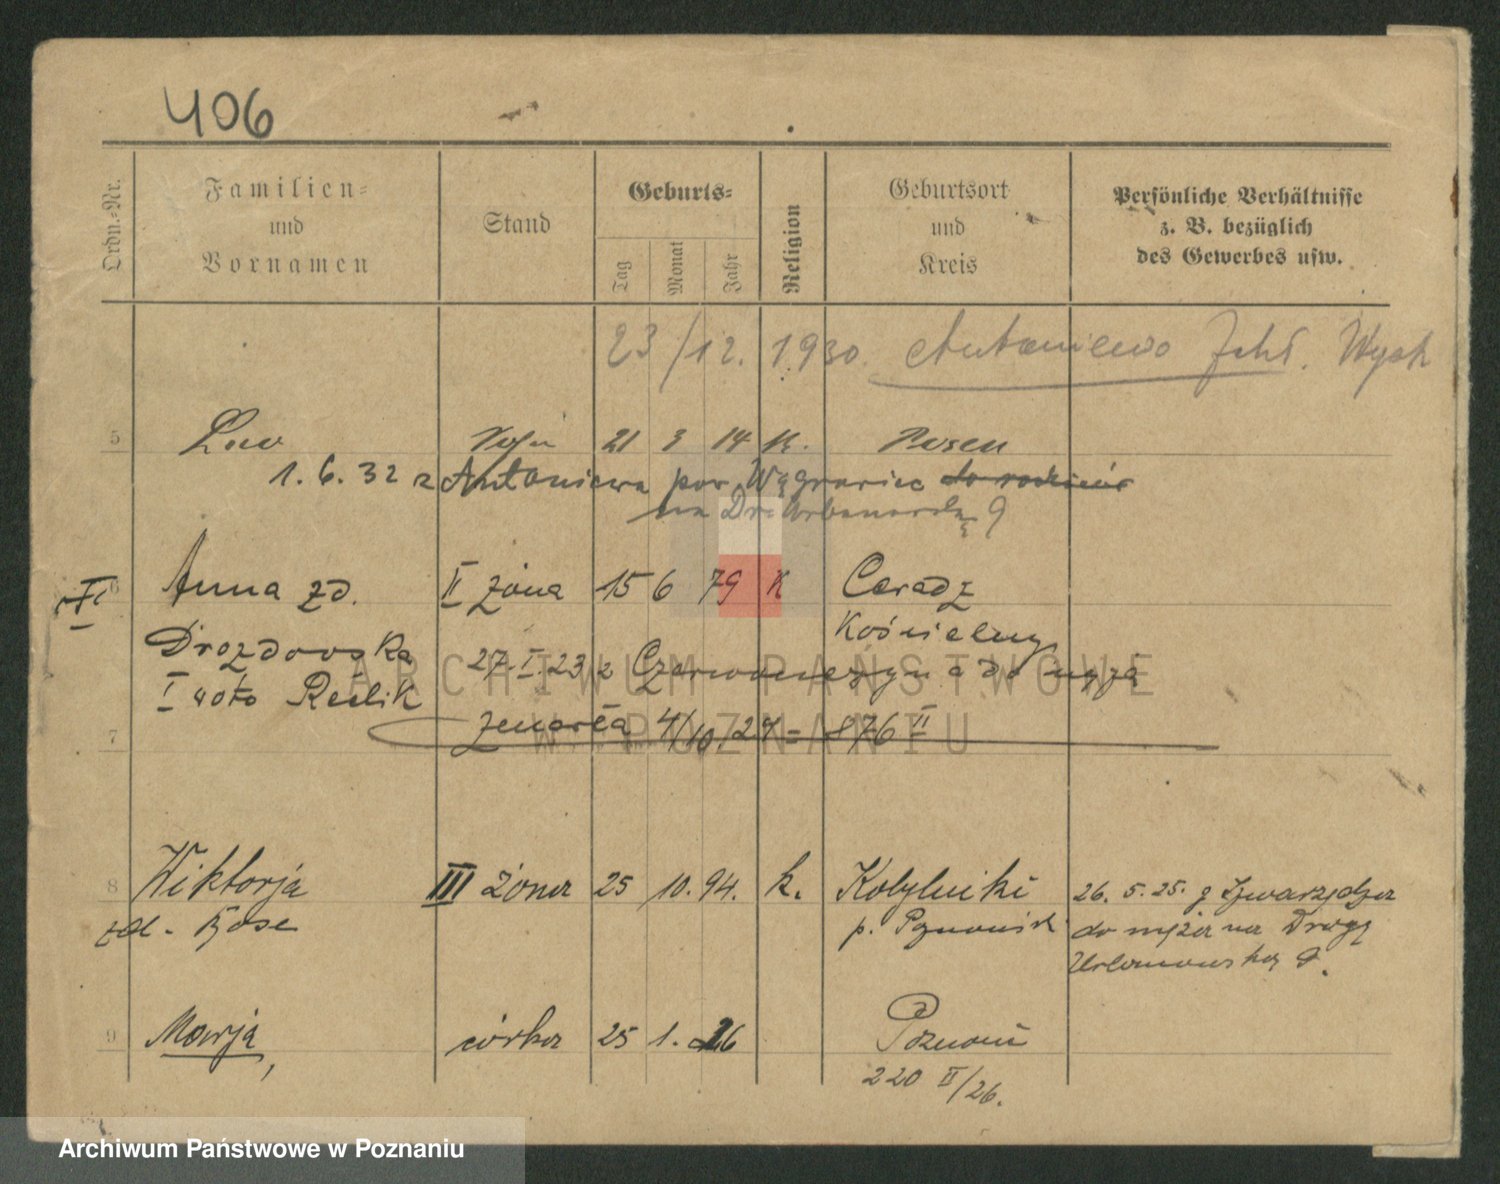 406
Ordn.-Nr.
Familien-
und
Vornamen
Stand
Geburts-
Tag
Monat
Jahr
Religion
Geburtsort
und
Kreis
Persönliche Verhältnisse
z. B. bezüglich
des Gewerbes usw.
23/12. 1930. Antoniewo Wysk
5 Leo 21 3 14 K. Posen
1. 6. 32 z Antoniewa pow Wągrowiec
na 9
6 Anna zd. II żona 15 6 79 K Ceradz
Kościelny
Drozdowska
27.I.23 z do męża
I voto Reclik
7 zmarła 4/10.24 = 876 II
8 Wiktorja III żona 25 10. 94. k. Kobylniki
zd. p. Poznański
26. 5. 25. z Swarzędza
do męża na Drogę
Urbanowską 9.
9 Marja, córka 25 1. 26 Poznań
220 II/26.
ARCHIWUM PAŃSTWOWE
W POZNANIU
Archiwum Państwowe w Poznaniu